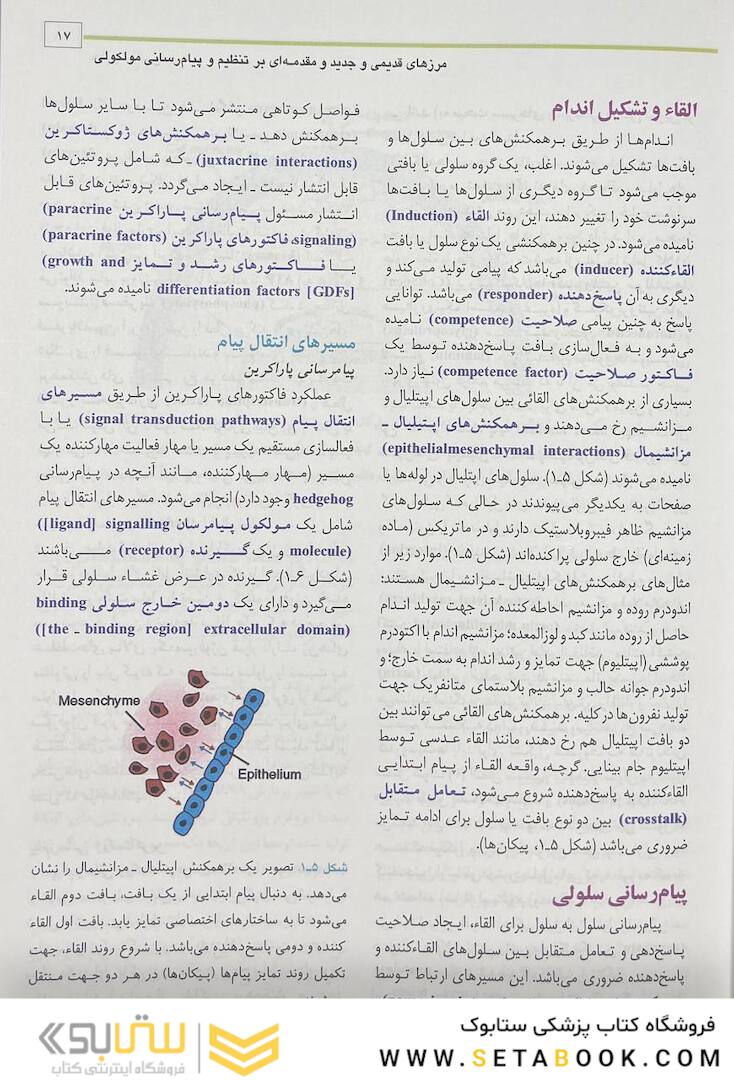 ۱۷
مرزهای قدیمی و جدید و مقدمه‌ای بر تنظیم و پیام‌رسانی مولکولی
القاء و تشکیل اندام
اندام‌ها از طریق برهمکنش‌های بین سلول‌ها و
بافت‌ها تشکیل می‌شوند. اغلب، یک گروه سلولی یا بافتی
موجب می‌شود تا گروه دیگری از سلول‌ها یا بافت‌ها
سرنوشت خود را تغییر دهند، این روند القاء (Induction)
نامیده می‌شود. در چنین برهمکنشی یک نوع سلول یا بافت
القاءکننده (inducer) می‌باشد که پیامی تولید می‌کند و
دیگری به آن پاسخ‌دهنده (responder) می‌باشد. توانایی
پاسخ به چنین پیامی صلاحیت (competence) نامیده
می‌شود و به فعال‌سازی بافت پاسخ‌دهنده توسط یک
فاکتور صلاحیت (competence factor) نیاز دارد.
بسیاری از برهمکنش‌های القائی بین سلول‌های اپیتلیال و
مزانشیم رخ می‌دهند و برهمکنش‌های اپیتیلیال ـ
مزانشیمال (epithelialmesenchymal interactions)
نامیده می‌شوند (شکل ۵ـ۱). سلول‌های اپتلیال در لوله‌ها یا
صفحات به یکدیگر می‌پیوندند در حالی که سلول‌های
مزانشیم ظاهر فیبروبلاستیک دارند و در ماتریکس (ماده
زمینه‌ای) خارج سلولی پراکنده‌اند (شکل ۵ـ۱). موارد زیر از
مثال‌های برهمکنش‌های اپیتلیال ـ مزانشیمال هستند:
اندودرم روده و مزانشیم احاطه‌کننده آن جهت تولید اندام
حاصل از روده مانند کبد و لوزالمعده؛ مزانشیم اندام با اکتودرم
پوششی (اپیتلیوم) جهت تمایز و رشد اندام به سمت خارج؛ و
اندودرم جوانه حالب و مزانشیم بلاستمای متانفریک جهت
تولید نفرون‌ها در کلیه. برهمکنش‌های القائی می‌توانند بین
دو بافت اپیتلیال هم رخ دهند، مانند القاء عدسی توسط
اپیتلیوم جام بینایی. گرچه، واقعه القاء از پیام ابتدایی
القاءکننده به پاسخ‌دهنده شروع می‌شود، تعامل متقابل
(crosstalk) بین دو نوع بافت یا سلول برای ادامه تمایز
ضروری می‌باشد (شکل ۵ـ۱، پیکان‌ها).
پیام‌رسانی سلولی
پیام‌رسانی سلول به سلول برای القاء، ایجاد صلاحیت
پاسخ‌دهی و تعامل متقابل بین سلول‌های القاءکننده و
پاسخ‌دهنده ضروری می‌باشد. این مسیرهای ارتباط توسط
فواصل کوتاهی منتشر می‌شود تا با سایر سلول‌ها
برهمکنش دهد ـ یا برهمکنش‌های ژوکستاکرین
(juxtacrine interactions) ـ که شامل پروتئین‌های
قابل انتشار نیست ـ ایجاد می‌گردد. پروتئین‌های قابل
انتشار مسئول پیام‌رسانی پاراکرین (paracrine
signaling)، فاکتورهای پاراکرین (paracrine factors)
یا فاکتورهای رشد و تمایز (growth and
differentiation factors [GDFs] نامیده می‌شوند.
مسیرهای انتقال پیام
پیامرسانی پاراکرین
عملکرد فاکتورهای پاراکرین از طریق مسیرهای
انتقال پیام (signal transduction pathways) یا با
فعالسازی مستقیم یک مسیر یا مهار فعالیت مهارکننده یک
مسیر (مهار مهارکننده، مانند آنچه در پیام‌رسانی
hedgehog وجود دارد) انجام می‌شود. مسیرهای انتقال پیام
شامل یک مولکول پیامرسان signalling [ligand])
molecule) و یک گیرنده (receptor) می‌باشند
(شکل ۶ـ۱). گیرنده در عرض غشاء سلولی قرار
می‌گیرد و دارای یک دومین خارج سلولی binding
the ـ binding region] extracellular domain)])
Mesenchyme
Epithelium
شکل ۵ـ۱. تصویر یک برهمکنش اپیتلیال ـ مزانشیمال را نشان
می‌دهد. به دنبال پیام ابتدایی از یک بافت، بافت دوم القاء
می‌شود تا به ساختارهای اختصاصی تمایز یابد. بافت اول القاء
کننده و دومی پاسخ‌دهنده می‌باشد. با شروع روند القاء، جهت
تکمیل روند تمایز پیام‌ها (پیکان‌ها) در هر دو جهت منتقل
فروشگاه کتاب پزشکی ستابوک
WWW.SETABOOK.COM
ستابوک
فروشگاه اینترنتی کتاب